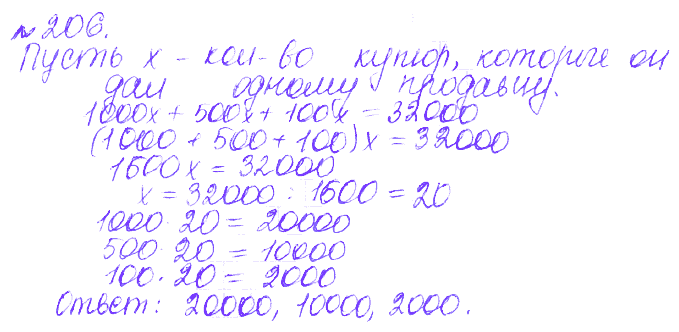 № 206.
Пусть x - кол-во купюр, которые он
дал одному продавцу.
1000x + 500x + 100x = 32000
(1000 + 500 + 100)x = 32000
1600x = 32000
x = 32000 : 1600 = 20
1000 · 20 = 20000
500 · 20 = 10000
100 · 20 = 2000
Ответ: 20000, 10000, 2000.